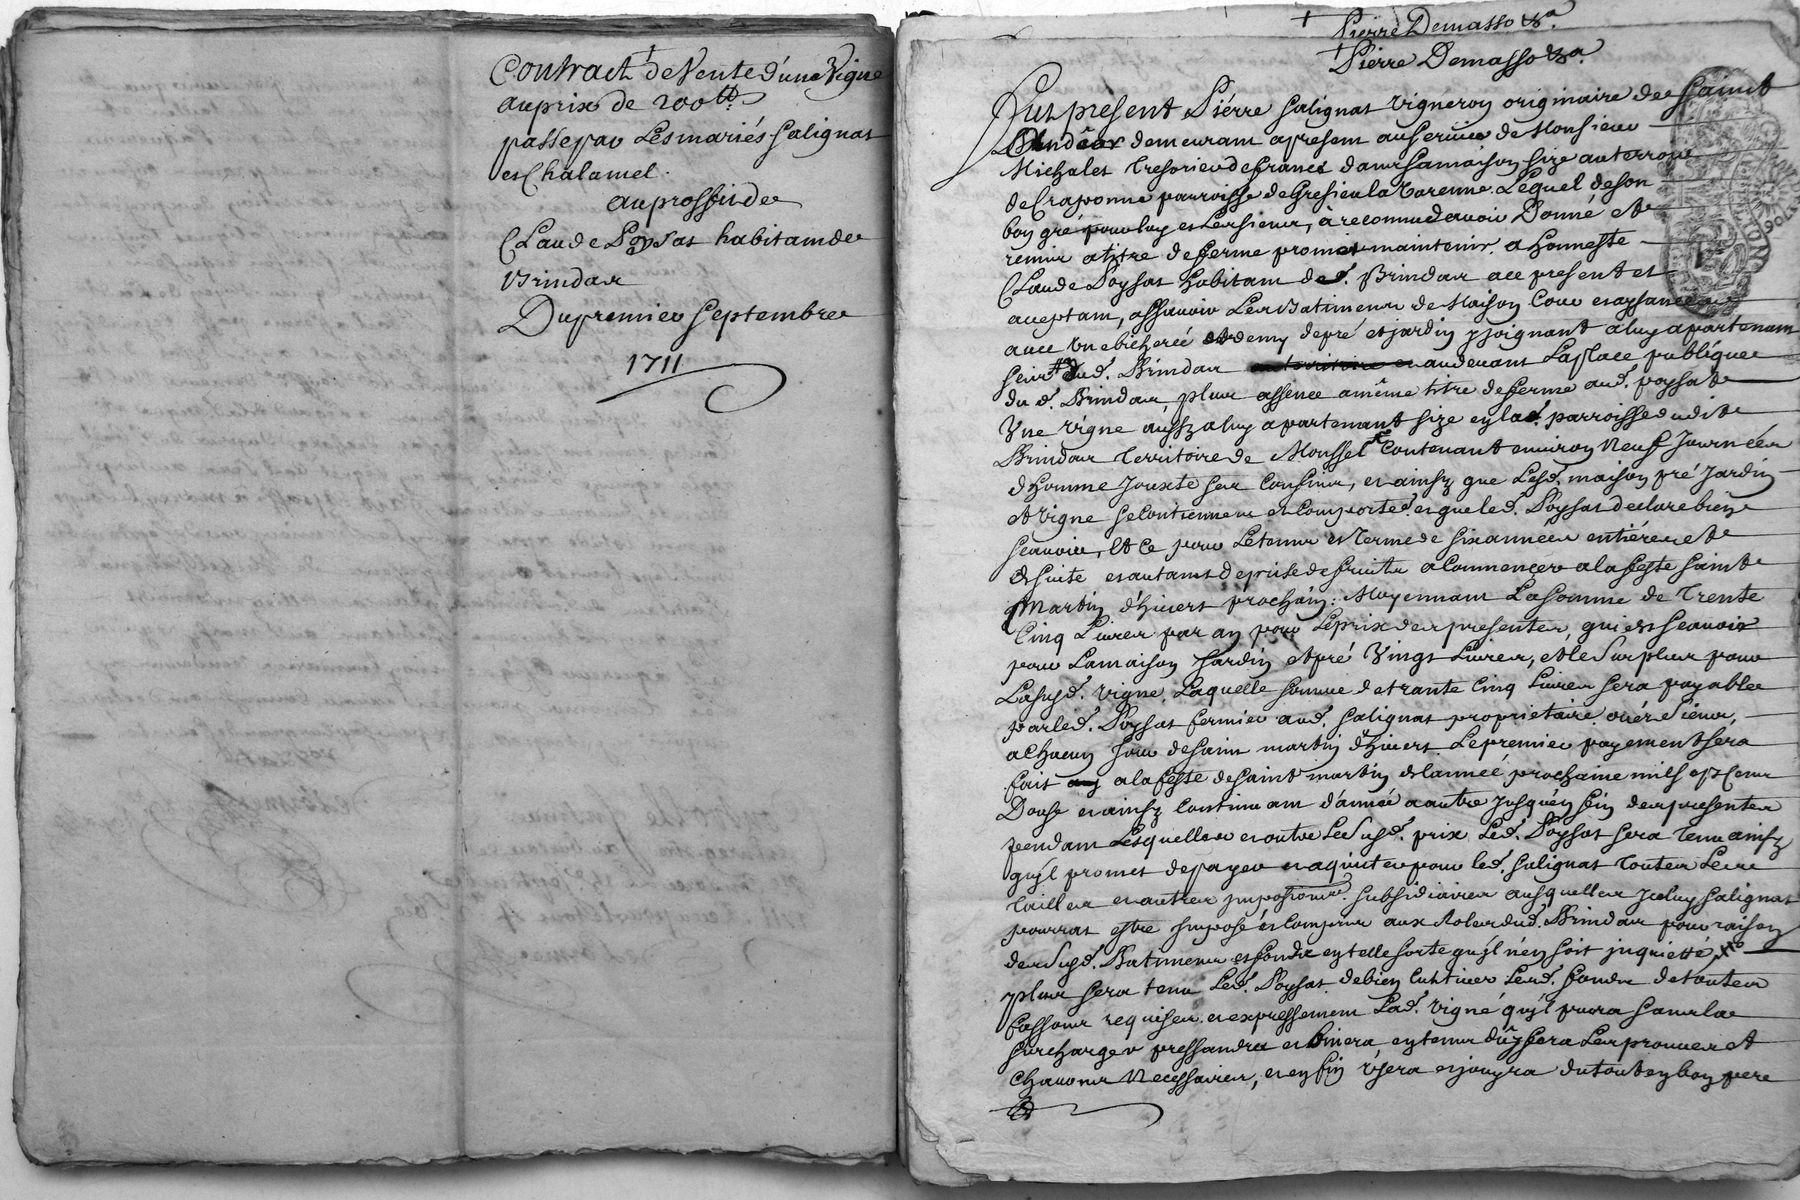 Contract de Vente d'une Vigne
au prix de 200 lt
passé par Les mariés Salignat
et Chalamel.
au proffit de
Claude Poysat habitant de
Brindas
Du premier Septembre
1711
Pierre Demasso
Pierre Demasso
Fut present Piérre Salignat Vigneron originaire de Saint
demeurant apresent au service de Monsieur
Michalet Tresorier de france dans sa maison size au terroir
de Craponne parroisse de Gresieu la Varenne. Lequel de son
bon gré pour luy et Les siens, à reconnu avoir Donné et
remis a titre de ferme promet maintenir a Honneste
Claude Poysat habitant dud. Brindas ace present et
aceptant, assavoir Les Batimens de Maison Cour et aysances
avec Une bicherée et demy de pré et jardin y joignant a luy apartenant
scitué aud. Brindas et audevant La place publique
dud. Brindas, plus assence a même titre de ferme aud. poysat
Une Vigne aussy a luy apartenant size en lad. parroisse dudit
Brindas Territoire de Moussel Contenant environ Neuf Journées
d'homme Jouxte ses Confins, et ainsy que Lesd. maison pré Jardin
et Vigne se Contiennent et Comportent et que led. Poysat declare bien
scavoir, Et ce pour Le temps et Terme de six années entiéres et
de suite et autant de prise de fruits a Commencer a la feste saint
Martin d'hivers prochain: Moyennant La somme de Trente
Cinq Livres par an pour Le prix des presentes, qui est scavoir
pour La maison Jardin et pré Vingt Livres, et le surplus pour
La susd. Vigne, Laquelle somme de trante Cinq Livres sera payable
par led. Poysat fermier aud. Salignat proprietaire ou és siens,
a Chacun Jour de saint martin d'hivers Le premier payement sera
fait a la feste de saint martin de l'année prochaine mil sept Cent
Douse et ainsy Continuant d'année a autre Jusqu'en fin des presentes
pendant Lesquelles et outre Le susd. prix Led. Poysat sera Tenu ainsy
qu'yl promet de payer et aquiter pour led. Salignat Toutes Les
Tailles et autres Impositions subsidiaires ausquelles Iceluy Salignat
pourrat estre Imposé et Compris aux Roles dud. Brindas pour raison
des susd. Batimens et fonds en telle sorte qu'yl n'en soit inquietté
plus sera tenu Led. Poysat de bien Cultiver Lesd. fonds de toutes
fassons requises et expressement Lad. Vigne qu'yl sans la
surcharger et binera en temps dû y fera Les provins et
Necessaires, et en fin Usera et jouyra du tout en bon pere